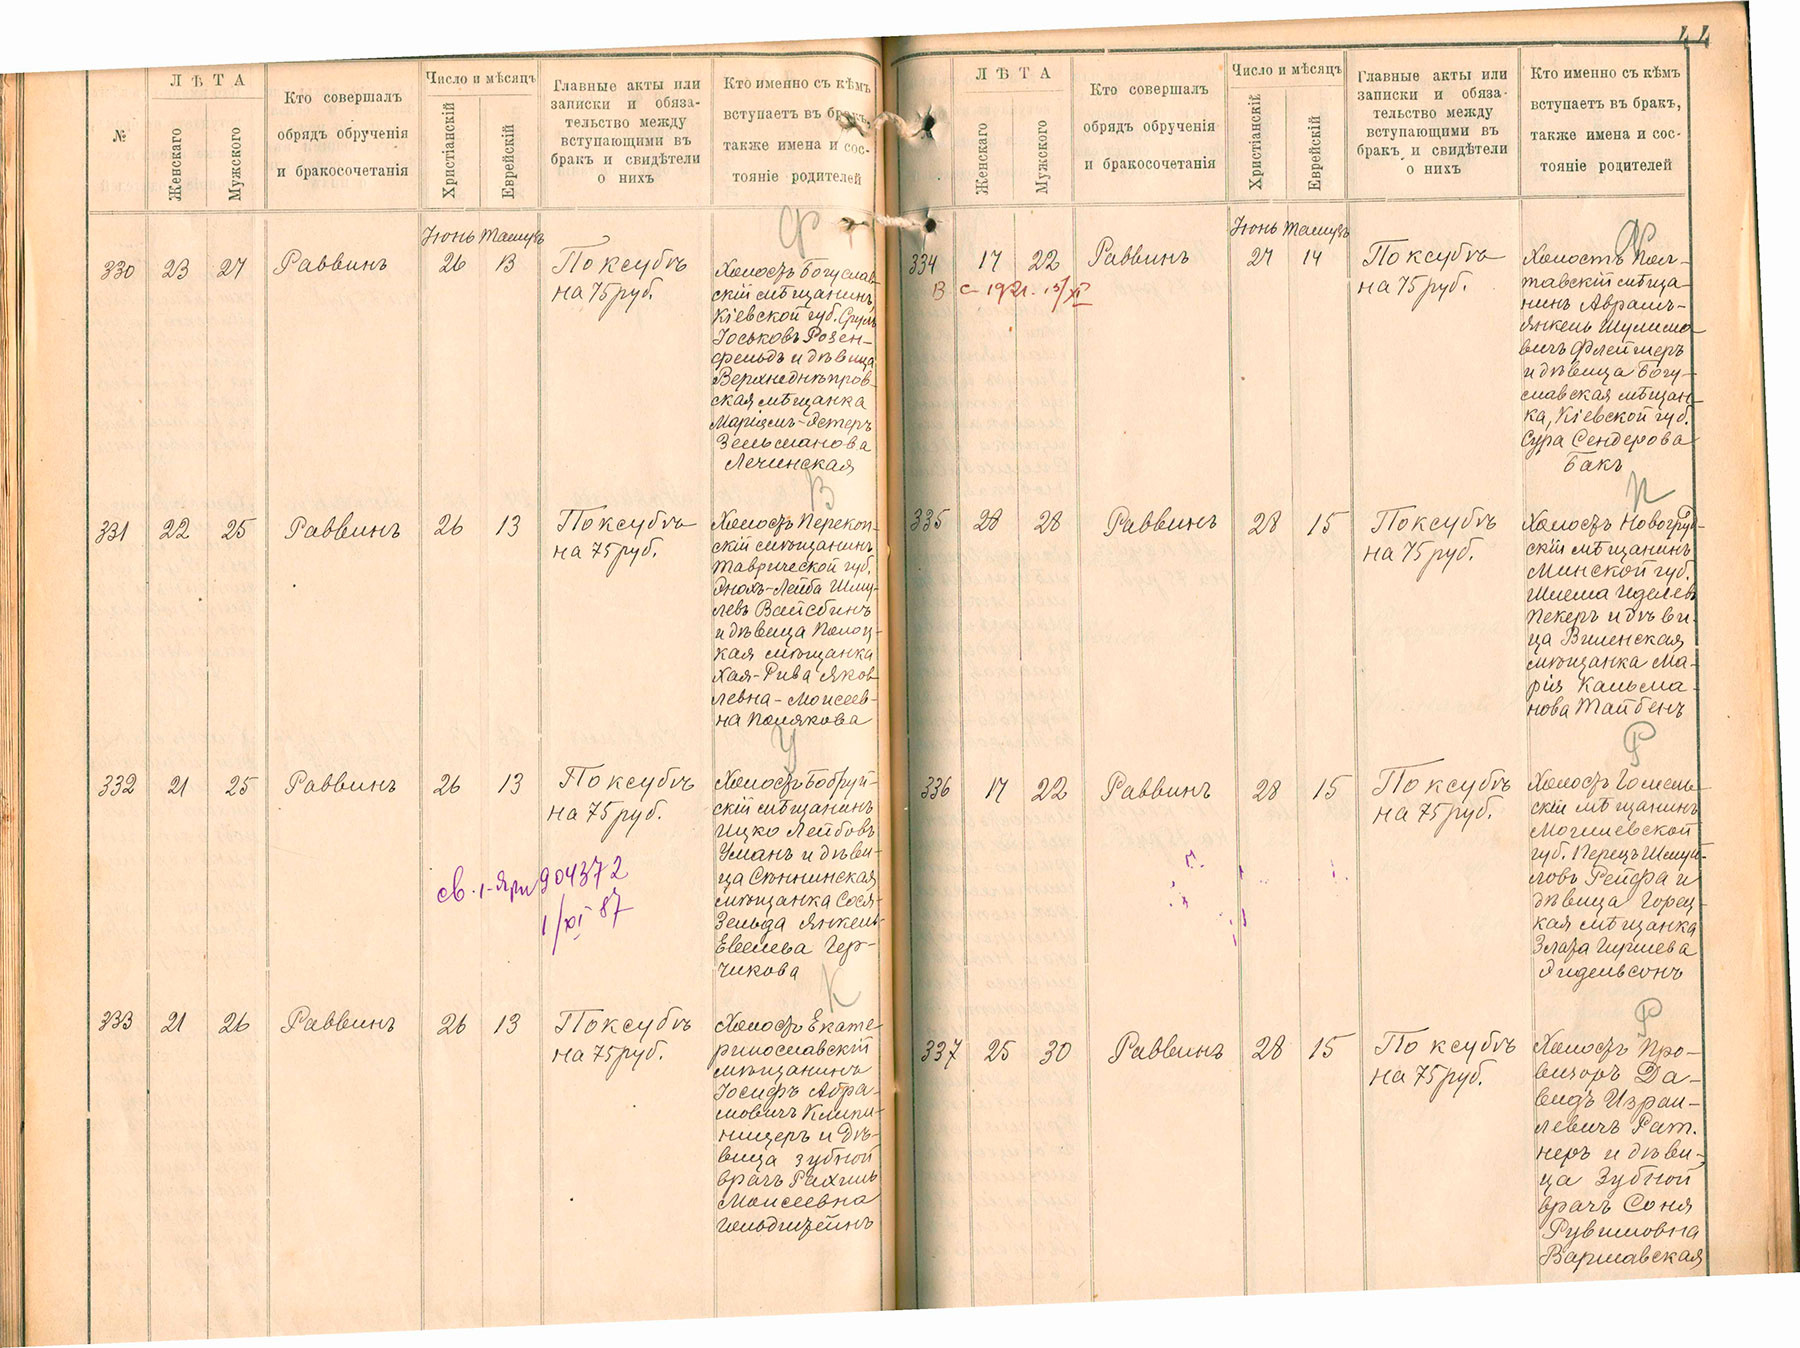 №
ЛѢТА
Женскаго
Мужского
Кто совершалъ
обрядъ обрученія
и бракосочетанія
Число и мѣсяцъ
Христіанскій
Еврейскій
Главные акты или
записки и обяза-
тельство между
вступающими въ
бракъ и свидѣтели
о нихъ
Кто именно съ кѣмъ
вступаетъ въ бракъ,
также имена и сос-
тояніе родителей
Ф
Іюнь Тамузъ
330 23 27 Раввинъ 26 13 По ксубѣ
на 75 руб.
Холостъ Богуслав-
скій мѣщанинъ,
Кіевской губ. Сруль
Іоськовъ Розен-
фельдъ и дѣвица
Верхнеднѣпров-
ская мѣщанка
Маріемъ-Эстеръ
Зельманова
Лечинская
В
331 22 25 Раввинъ 26 13 По ксубѣ
на 75 руб.
Холостъ Перекоп-
скій мѣщанинъ
Таврической губ.
Энохъ-Лейба Шму-
левъ Вайсбинъ
и дѣвица Полоц-
кая мѣщанка
Хая-Рива Яков-
левна-Моисеев-
на Полякова
У
332 21 25 Раввинъ 26 13 По ксубѣ
на 75 руб.
Холостъ Бобруй-
скій мѣщанинъ
Ицко Лейбовъ
Уманъ и дѣви-
ца Сѣннинская
мѣщанка Сося-
Зельда Янкель-
Евселева Гер-
чикова
св. 904372
1/XI 87
К
333 21 26 Раввинъ 26 13 По ксубѣ
на 75 руб.
Холостъ Екате-
ринославскій
мѣщанинъ
Іосифъ Абра-
мовичъ Клипи-
ницеръ и дѣ-
вица зубной
врачъ Рахиль
Моисеевна
Гольдштейнъ
44
ЛѢТА
Женскаго
Мужского
Кто совершалъ
обрядъ обрученія
и бракосочетанія
Число и мѣсяцъ
Христіанскій
Еврейскій
Главные акты или
записки и обяза-
тельство между
вступающими въ
бракъ и свидѣтели
о нихъ
Кто именно съ кѣмъ
вступаетъ въ бракъ,
также имена и сос-
тояніе родителей
Ф
Іюнь Тамузъ
334 17 22 Раввинъ 27 14 По ксубѣ
на 75 руб.
Холостъ Пол-
тавскій мѣща-
нинъ Аврамъ-
Янкель Шулимо-
вичъ Флейшеръ
и дѣвица Богу-
славская мѣщан-
ка, Кіевской губ.
Сура Сендерова
Бакъ
П
335 28 28 Раввинъ 28 15 По ксубѣ
на 75 руб.
Холостъ Новогруд-
скій мѣщанинъ
Минской губ.
Шлема Иделевъ
Пекеръ и дѣви-
ца Виленская
мѣщанка Ма-
рія Кальма-
нова Тайбенъ
Р
336 17 22 Раввинъ 28 15 По ксубѣ
на 75 руб.
Холостъ Гомель-
скій мѣщанинъ
Могилевской
губ. Перецъ Шмуй-
ловъ Рейфа и
дѣвица Горец-
кая мѣщанка
Злата Гиршева
Эйдельсонъ
Р
337 25 30 Раввинъ 28 15 По ксубѣ
на 75 руб.
Холостъ Про-
визоръ Да-
видъ Израи-
левичъ Рат-
неръ и дѣви-
ца Зубной
врачъ Соня
Рувимовна
Варшавская